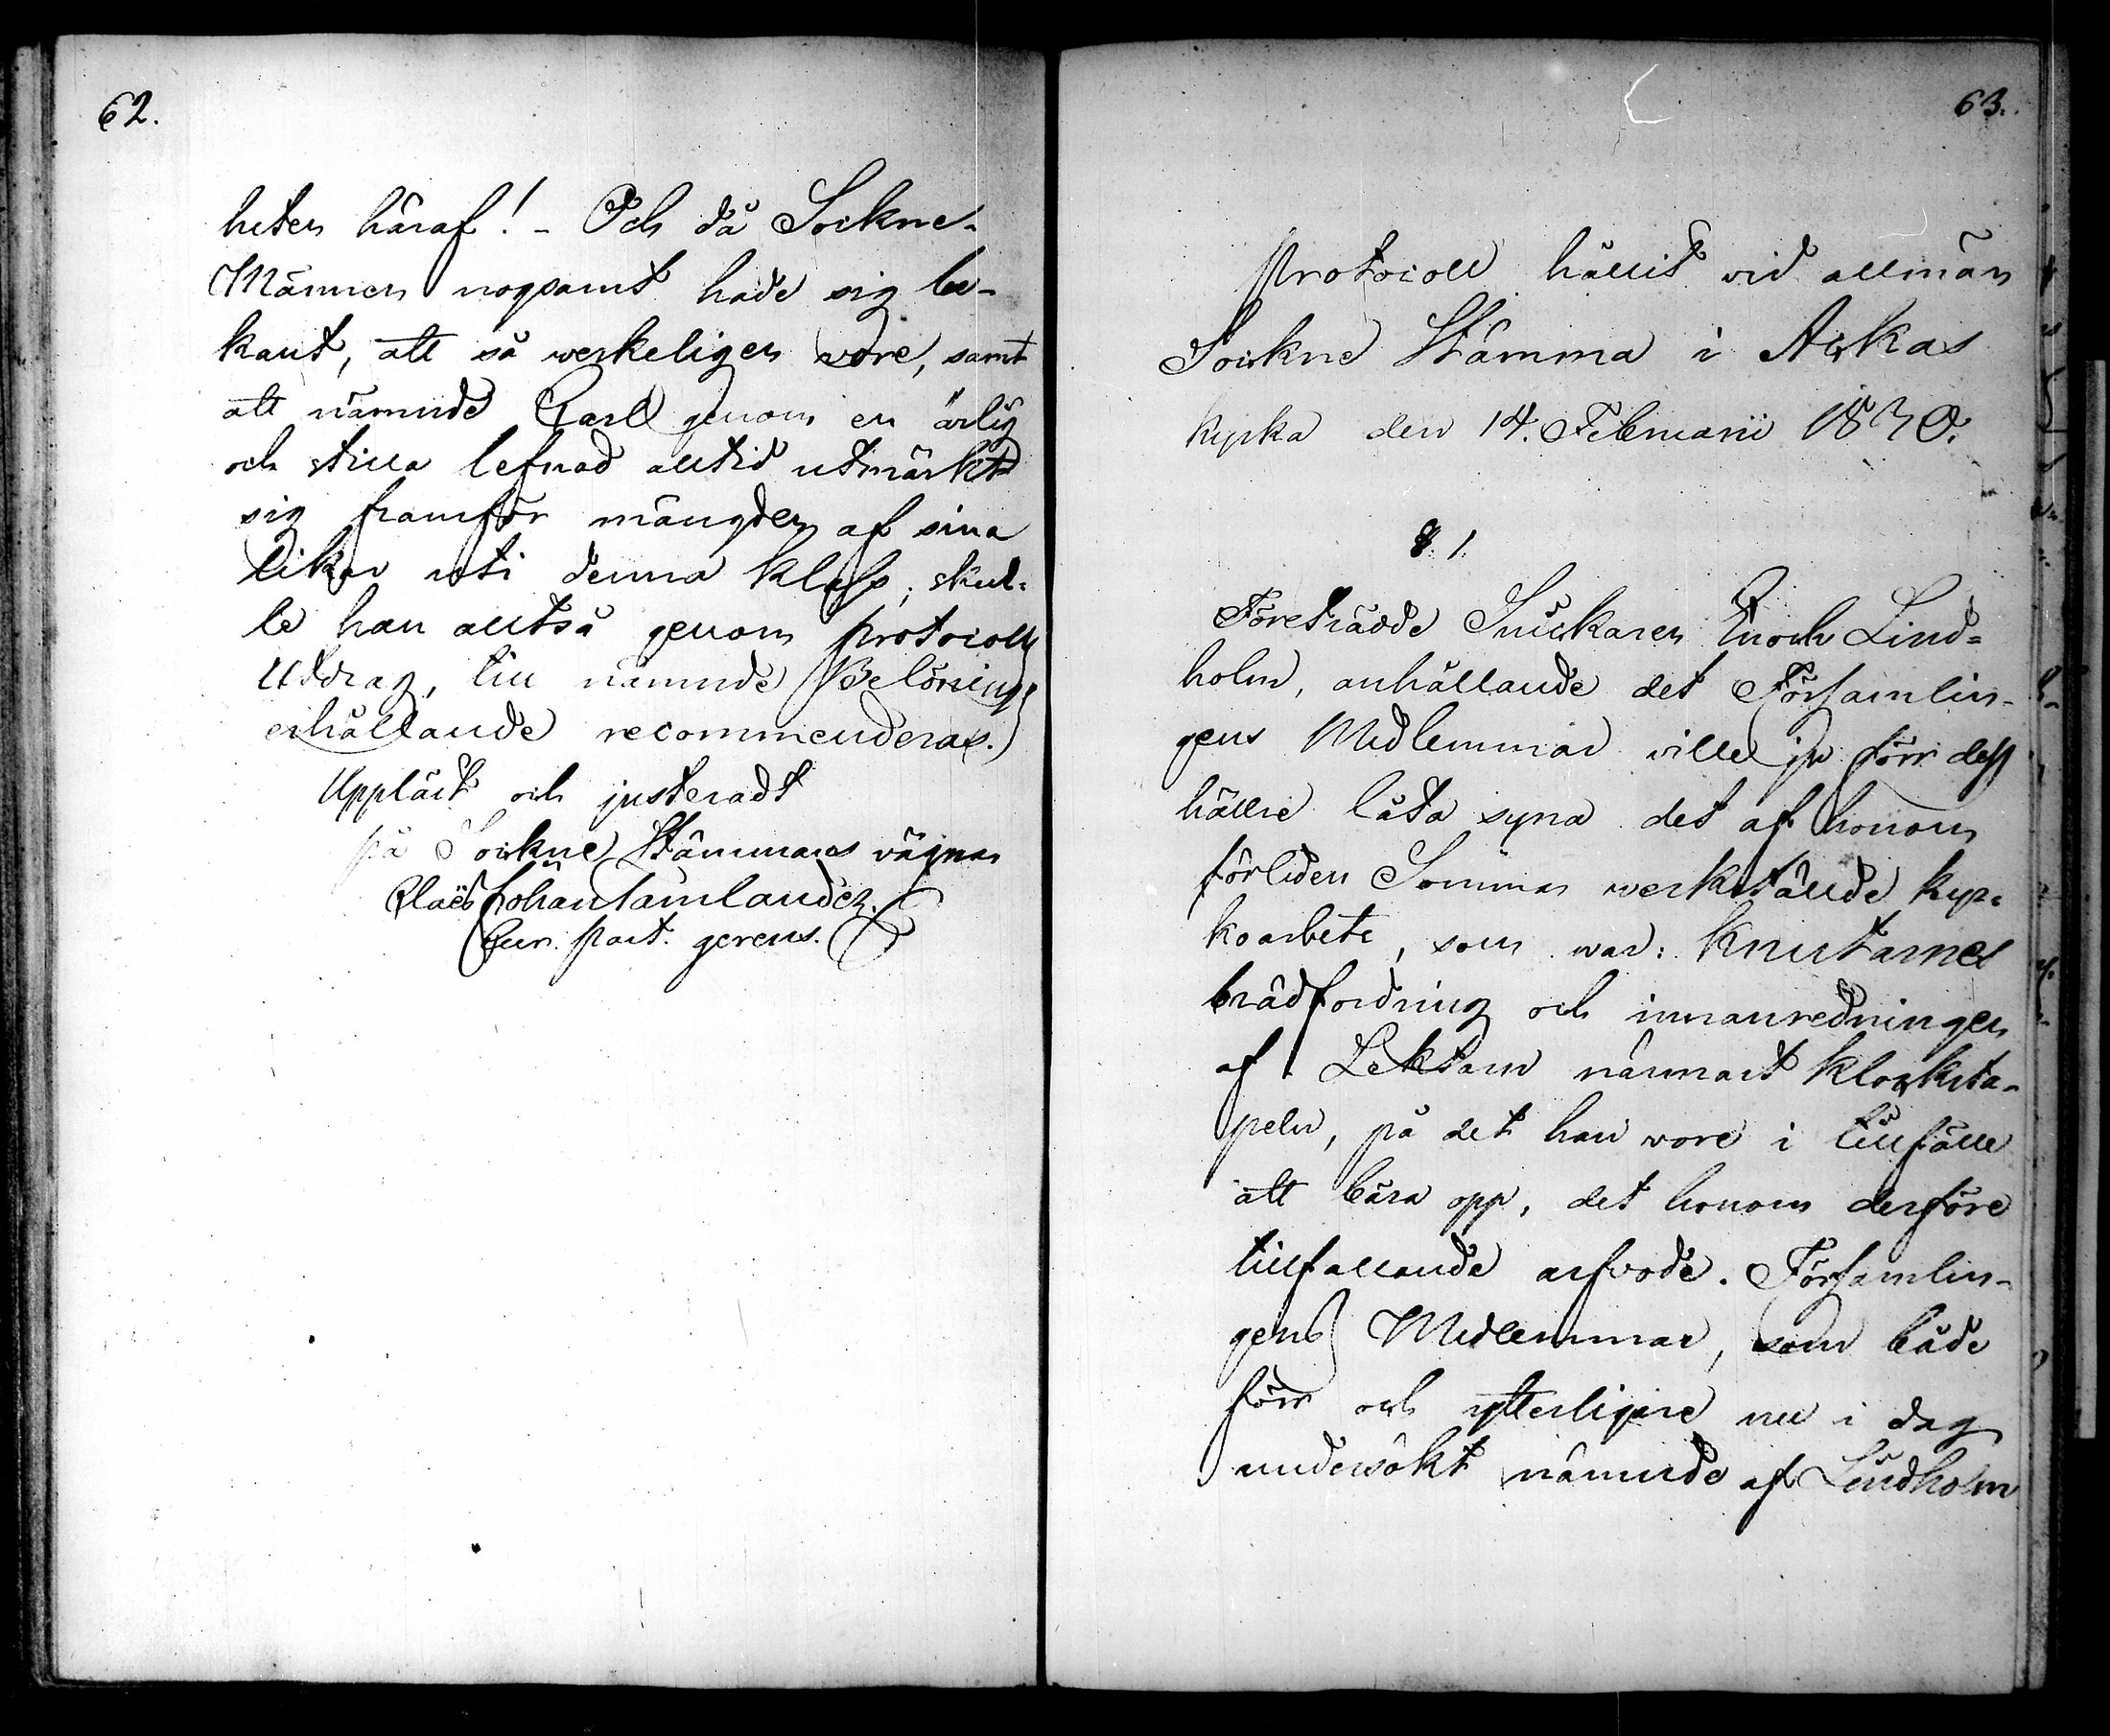 62.
heten häraf! - Och då Sockne-
Männen nogsamt hade sig be-
kant, att så werkeligen vore, samt
att nämnde Carl genom en ärlig
och stilla lefnad alltid utmärkt
sig framför mängden af sina
likar uti denna klass; skul-
le han alltså genom protocolls
Utdrag, till nämnde Belönings
erhållande recommenderas.
Uppläst och justeradt
på Sockne Stämmans vägnar
Claës Johan Tamlander.
Cur. past. gerens.
63.
Protocoll hållit vid allmän
Sockne Stämma i Askas
kyrka den 14. Februarii 1830.
§. 1.
Företrädde Snickaren Enoch Lind-
holm, anhållande det Församlin-
gens Medlemmar ville ju förr dess
hällre låta syna det af honom
förliden Sommar werkstälde kyr-
koarbete, som war: Knutarnes
brädfordning och innanredningen
af Lektarn närmast klocksta-
peln, på det han wore i tillfälle
att bära opp, det honom derföre
tillfallande arfvode. Församlin-
gens Medlemmar, som både
förr och ytterligare nu i dag
undersökt nämnde af Lindholm